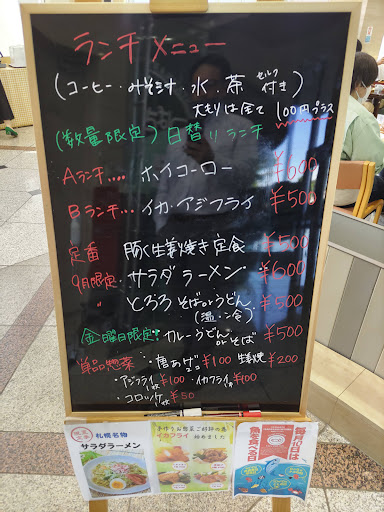 ランチメニュー
(コーヒー・みそ汁・水・茶 セルフ付き)
大もりは全て 100円プラス
(数量限定) 日替りランチ
Aランチ…. ホイコーロー ¥600
Bランチ… イカ・アジフライ ¥500
定番 豚生姜焼き定食 ¥500
9月限定・サラダラーメン ¥600
〃 とろろそばorうどん ¥500
(温・冷)
金曜日限定・カレーうどんorそば ¥500
単品惣菜 ・唐あげ2コ ¥100 生姜焼 ¥200
・アジフライ1枚 ¥100 ・イカフライ1枚 ¥100
・コロッケ1枚 ¥50
札幌名物
サラダラーメン
手作りお惣菜ご好評の為
イカフライ
始めました
毎月10日は
魚を食べる日